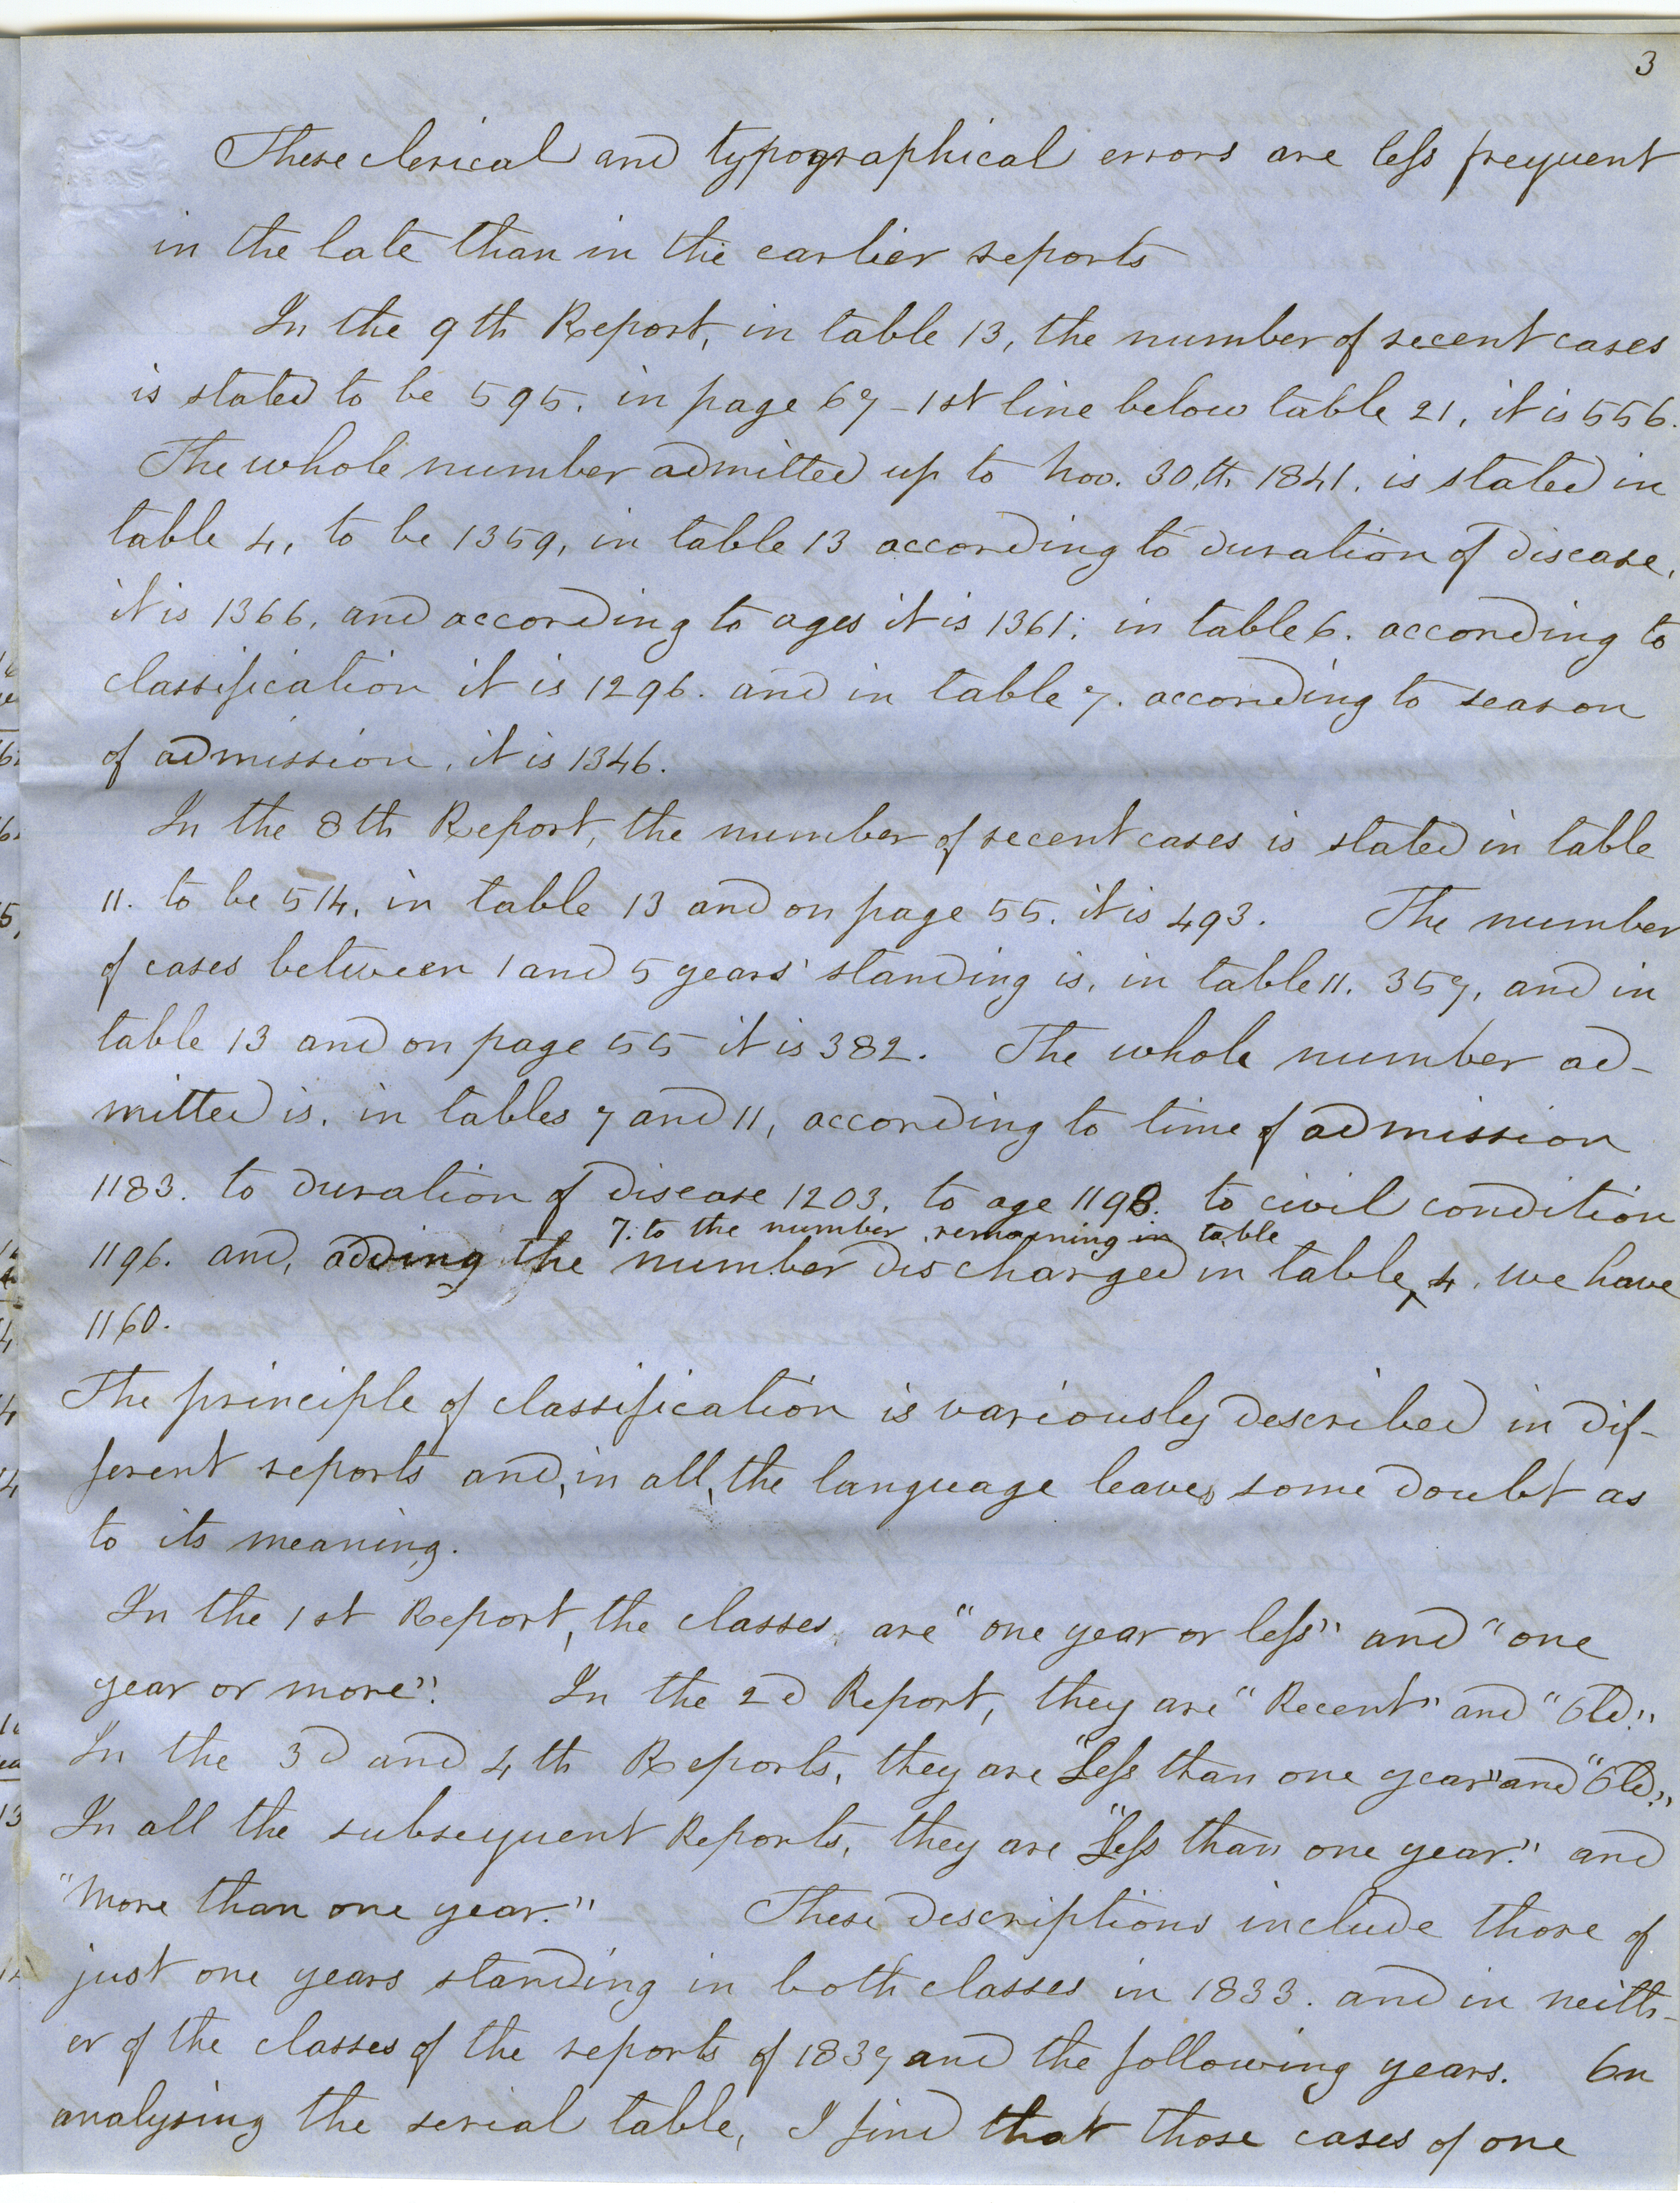 3
These clerical and typographical errors are less frequent
in the late than in the earlier reports
In the 9th Report, in table 13, the number of recent cases
is stated to be 595. in page 67 - 1st line below table 21, it is 556.
The whole number admitted up to Nov. 30th, 1841. is stated in
table 4, to be 1359, in table 13 according to duration of disease,
it is 1366, and according to ages it is 1361; in table 6. according to
classification it is 1296. and in table 7. according to season
of admission, it is 1346.
In the 8th Report, the number of recent cases is stated in table
11. to be 514, in table 13 and on page 55. it is 493. The number
of cases between 1 and 5 years' standing is, in table 11. 357, and in
table 13 and on page 55 it is 382. The whole number ad-
mitted is, in tables 7 and 11, according to time of admission
1183. to duration of disease 1203, to age 1198. to civil condition
7. to the number remaining in table
1196. and, adding the number discharged in table 4. we have
1160.
The principle of classification is variously described in dif-
ferent reports and, in all, the language leaves some doubt as
to its meaning.
In the 1st Report, the classes are "one year or less" and "one
year or more". In the 2d Report, they are "Recent" and "Old."
In the 3d and 4th Reports, they are "Less than one year" and "Old."
In all the subsequent Reports, they are "Less than one year." and
"More than one year." These descriptions include those of
just one years standing in both classes in 1833. and in neith-
er of the classes of the reports of 1837 and the following years. On
analysing the serial table, I find that those cases of one